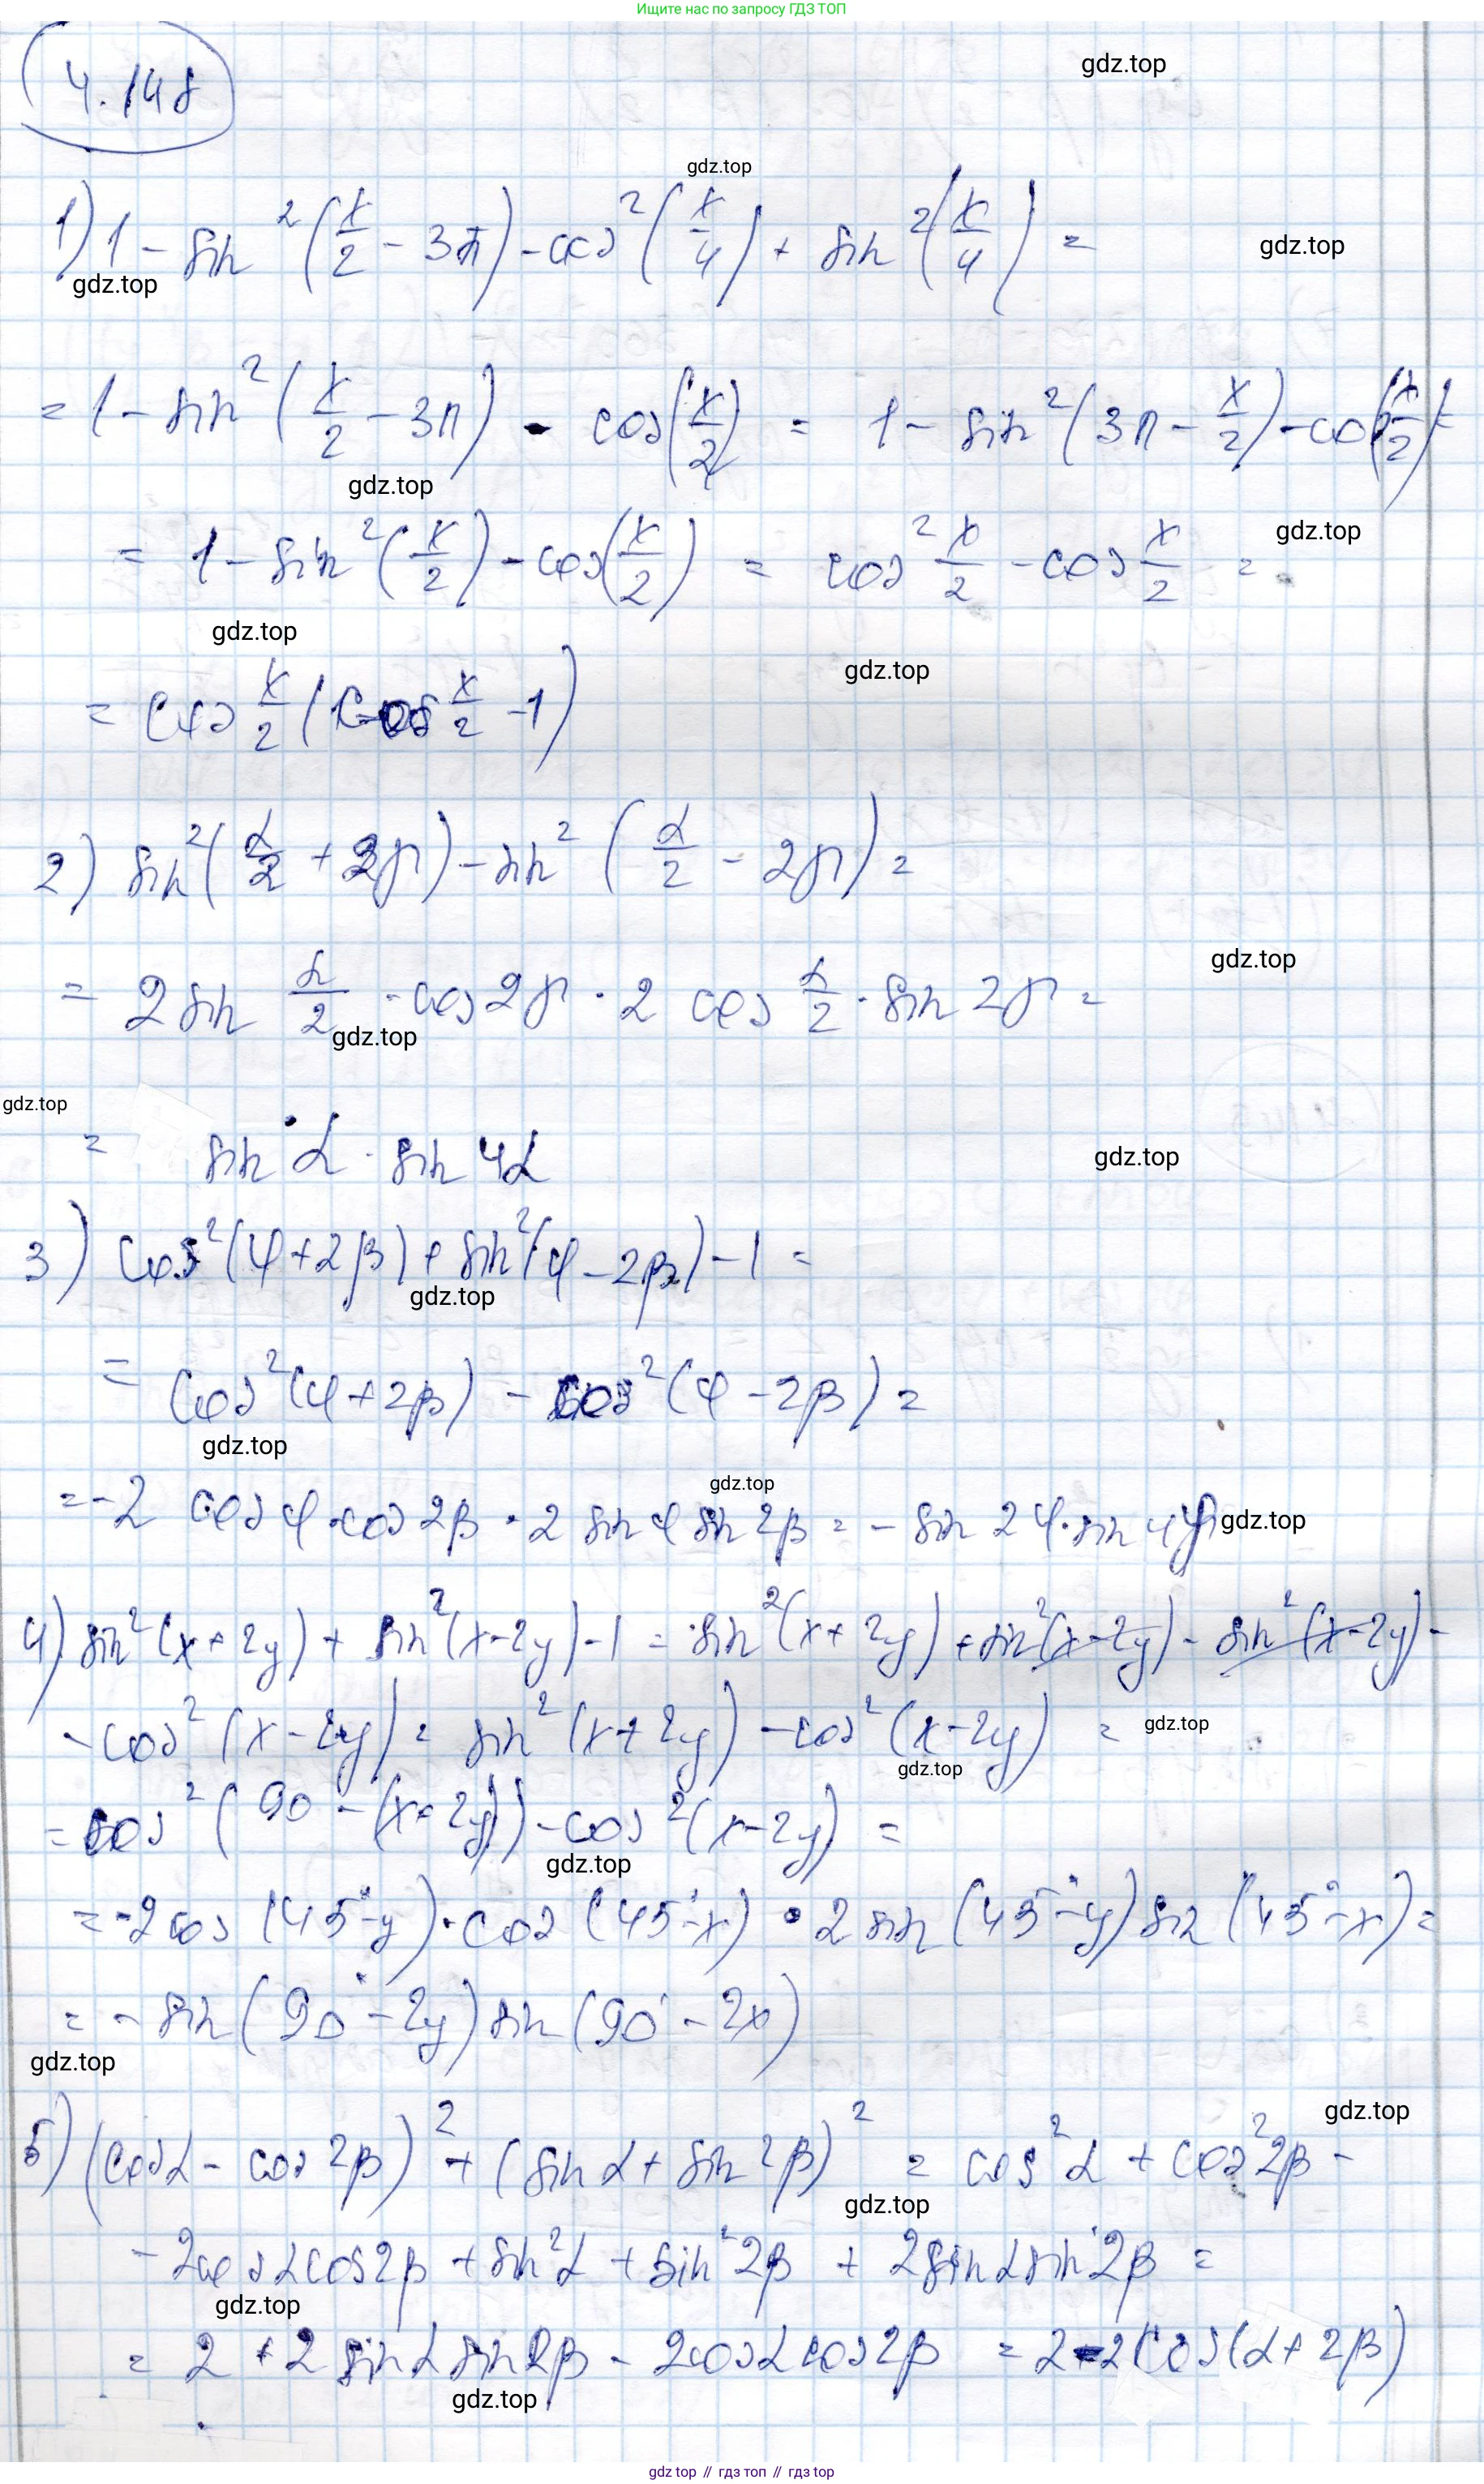 Ищите нас по запросу ГДЗ ТОП
4.148
gdz.top
gdz.top
1) 1 - sin²(x/2 - 3π) - cos²(x/4) + sin²(x/4) =
gdz.top
gdz.top
= 1 - sin²(x/2 - 3π) - cos(x/2) = 1 - sin²(3π - x/2) - cos(x/2) =
gdz.top
= 1 - sin²(x/2) - cos(x/2) = cos² x/2 - cos x/2 =
gdz.top
gdz.top
gdz.top
= cos x/2 (cos x/2 - 1)
2) sin²(α/2 + 2π) - sin²(α/2 - 2π) =
gdz.top
= 2 sin α/2 · cos 2π · 2 cos α/2 · sin 2π =
gdz.top
gdz.top
= sin α · sin 4α
gdz.top
3) cos²(φ + 2β) + sin²(φ - 2β) - 1 =
gdz.top
= cos²(φ + 2β) - cos²(φ - 2β) =
gdz.top
gdz.top
= -2 cos φ · cos 2β · 2 sin φ sin 2β = - sin 2φ · sin 4β
gdz.top
4) sin²(x + 2y) + sin²(x - 2y) - 1 = sin²(x + 2y) + sin²(x - 2y) - sin²(x - 2y) -
- cos²(x - 2y) = sin²(x + 2y) - cos²(x - 2y) =
gdz.top
gdz.top
= cos²(90 - (x + 2y)) - cos²(x - 2y) =
gdz.top
= -2 cos(45° - y) · cos(45° - x) · 2 sin(45° - y) sin(45° - x) =
= - sin(90° - 2y) sin(90° - 2x)
gdz.top
gdz.top
5) (cos α - cos 2β)² + (sin α + sin 2β)² = cos² α + cos² 2β -
gdz.top
- 2 cos α cos 2β + sin² α + sin² 2β + 2 sin α sin 2β =
gdz.top
= 2 + 2 sin α sin 2β - 2 cos α cos 2β = 2 - 2 cos(α + 2β)
gdz.top
gdz top // гдз топ // гдз top